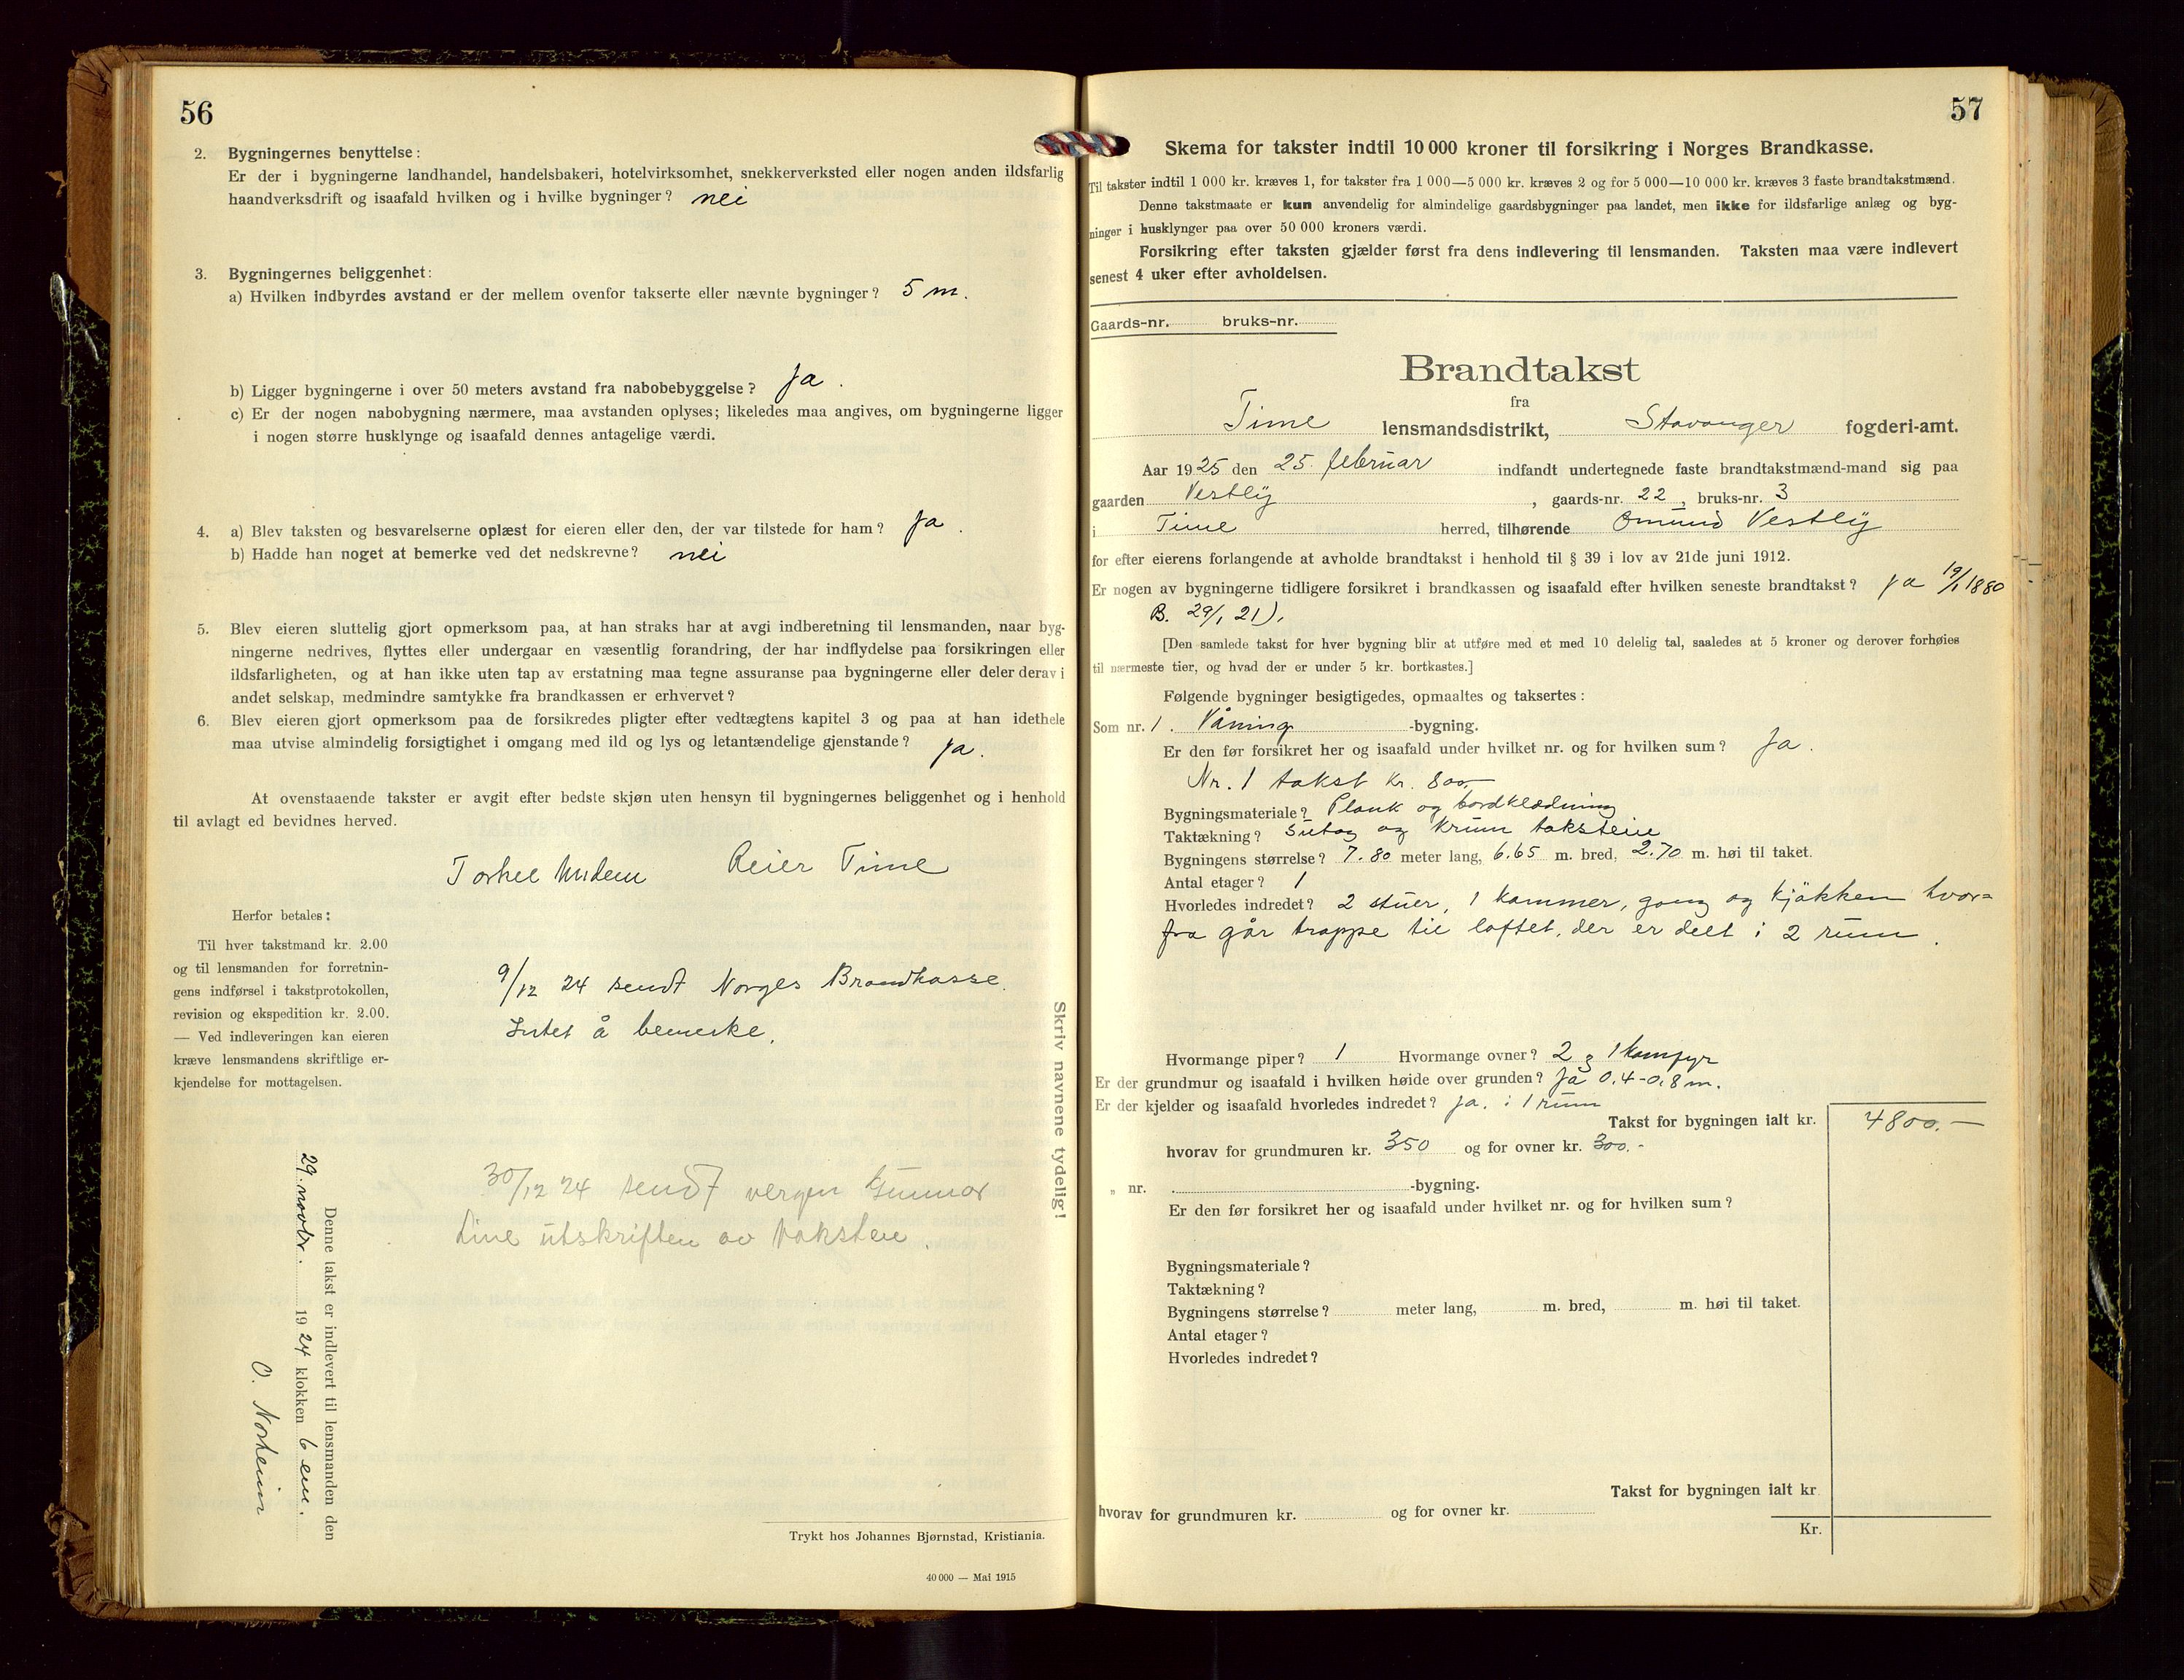 56
2. Bygningernes benyttelse:
Er der i bygningerne landhandel, handelsbakeri, hotelvirksomhet, snekkerverksted eller nogen anden ildsfarlig
haandverksdrift og isaafald hvilken og i hvilke bygninger? nei
3. Bygningernes beliggenhet:
a) Hvilken indbyrdes avstand er der mellem ovenfor takserte eller nævnte bygninger? 5 m.
b) Ligger bygningerne i over 50 meters avstand fra nabobebyggelse? Ja.
c) Er der nogen nabobygning nærmere, maa avstanden oplyses; likeledes maa angives, om bygningerne ligger
i nogen større husklynge og isaafald dennes antagelige værdi.
4. a) Blev taksten og besvarelserne oplæst for eieren eller den, der var tilstede for ham? Ja.
b) Hadde han noget at bemerke ved det nedskrevne? nei
5. Blev eieren sluttelig gjort opmerksom paa, at han straks har at avgi indberetning til lensmanden, naar byg-
ningerne nedrives, flyttes eller undergaar en væsentlig forandring, der har indflydelse paa forsikringen eller
ildsfarligheten, og at han ikke uten tap av erstatning maa tegne assuranse paa bygningerne eller deler derav i
andet selskap, medmindre samtykke fra brandkassen er erhvervet?
6. Blev eieren gjort opmerksom paa de forsikredes pligter efter vedtægtens kapitel 3 og paa at han idethele
maa utvise almindelig forsigtighet i omgang med ild og lys og letantændelige gjenstande? ja.
At ovenstaaende takster er avgit efter bedste skjøn uten hensyn til bygningernes beliggenhet og i henhold
til avlagt ed bevidnes herved.
Reier Time
Herfor betales:
Til hver takstmand kr. 2.00
og til lensmanden for forretnin-
gens indførsel i takstprotokollen,
revision og ekspedition kr. 2.00.
— Ved indleveringen kan eieren
kræve lensmandens skriftlige er-
kjendelse for mottagelsen.
9/12 24 sendt Norges Brandkasse.
Intet å bemerke.
30/12 24 sendt vergen Gunnar
Line utskriften av taksten.
Skriv navnene tydelig!
Denne takst er indlevert til lensmanden den
29. novbr. 1924 klokken 6 em.
O. Norheim
Trykt hos Johannes Bjørnstad, Kristiania.
40 000 — Mai 1915
57
Skema for takster indtil 10 000 kroner til forsikring i Norges Brandkasse.
Til takster indtil 1 000 kr. kræves 1, for takster fra 1 000—5 000 kr. kræves 2 og for 5 000—10 000 kr. kræves 3 faste brandtakstmænd.
Denne takstmaate er kun anvendelig for almindelige gaardsbygninger paa landet, men ikke for ildsfarlige anlæg og byg-
ninger i husklynger paa over 50 000 kroners værdi.
Forsikring efter taksten gjælder først fra dens indlevering til lensmanden. Taksten maa være indlevert
senest 4 uker efter avholdelsen.
Gaards-nr. bruks-nr.
Brandtakst
fra
Time lensmandsdistrikt, Stavanger fogderi-amt.
Aar 1925 den 25. februar indfandt undertegnede faste brandtakstmænd-mand sig paa
gaarden Vestly, gaards-nr. 22, bruks-nr. 3
i Time herred, tilhørende Omund Vestly
for efter eierens forlangende at avholde brandtakst i henhold til § 39 i lov av 21de juni 1912.
Er nogen av bygningerne tidligere forsikret i brandkassen og isaafald efter hvilken seneste brandtakst? ja 19/1 1880
B. 29/1 21).
[Den samlede takst for hver bygning blir at utføre med et med 10 delelig tal, saaledes at 5 kroner og derover forhøies
til nærmeste tier, og hvad der er under 5 kr. bortkastes.]
Følgende bygninger besigtigedes, opmaaltes og taksertes:
Som nr. 1. Våning -bygning.
Er den før forsikret her og isaafald under hvilket nr. og for hvilken sum? Ja.
Nr. 1 takst kr. 800,-
Bygningsmateriale? Plank og bordklædning
Taktækning? Sutag og krum taksteine
Bygningens størrelse? 7.80 meter lang, 6.65 m. bred, 2.70 m. høi til taket.
Antal etager? 1
Hvorledes indredet? 2 stuer, 1 kammer, gang og kjøkken hvor=
fra går trappe til loftet, der er delt i 2 rum.
Hvormange piper? 1 Hvormange ovner? 2 og 1 komfyr
Er der grundmur og isaafald i hvilken høide over grunden? Ja 0,4-0,8 m.
Er der kjelder og isaafald hvorledes indredet? ja, i 1 rum
Takst for bygningen ialt kr. 4800.-
hvorav for grundmuren kr. 350 og for ovner kr. 300.-
„ nr. -bygning.
Er den før forsikret her og isaafald under hvilket nr. og for hvilken sum?
Bygningsmateriale?
Taktækning?
Bygningens størrelse? meter lang, m. bred, m. høi til taket.
Antal etager?
Hvorledes indredet?
Takst for bygningen ialt kr
hvorav for grundmuren kr. og for ovner kr.
Kr.